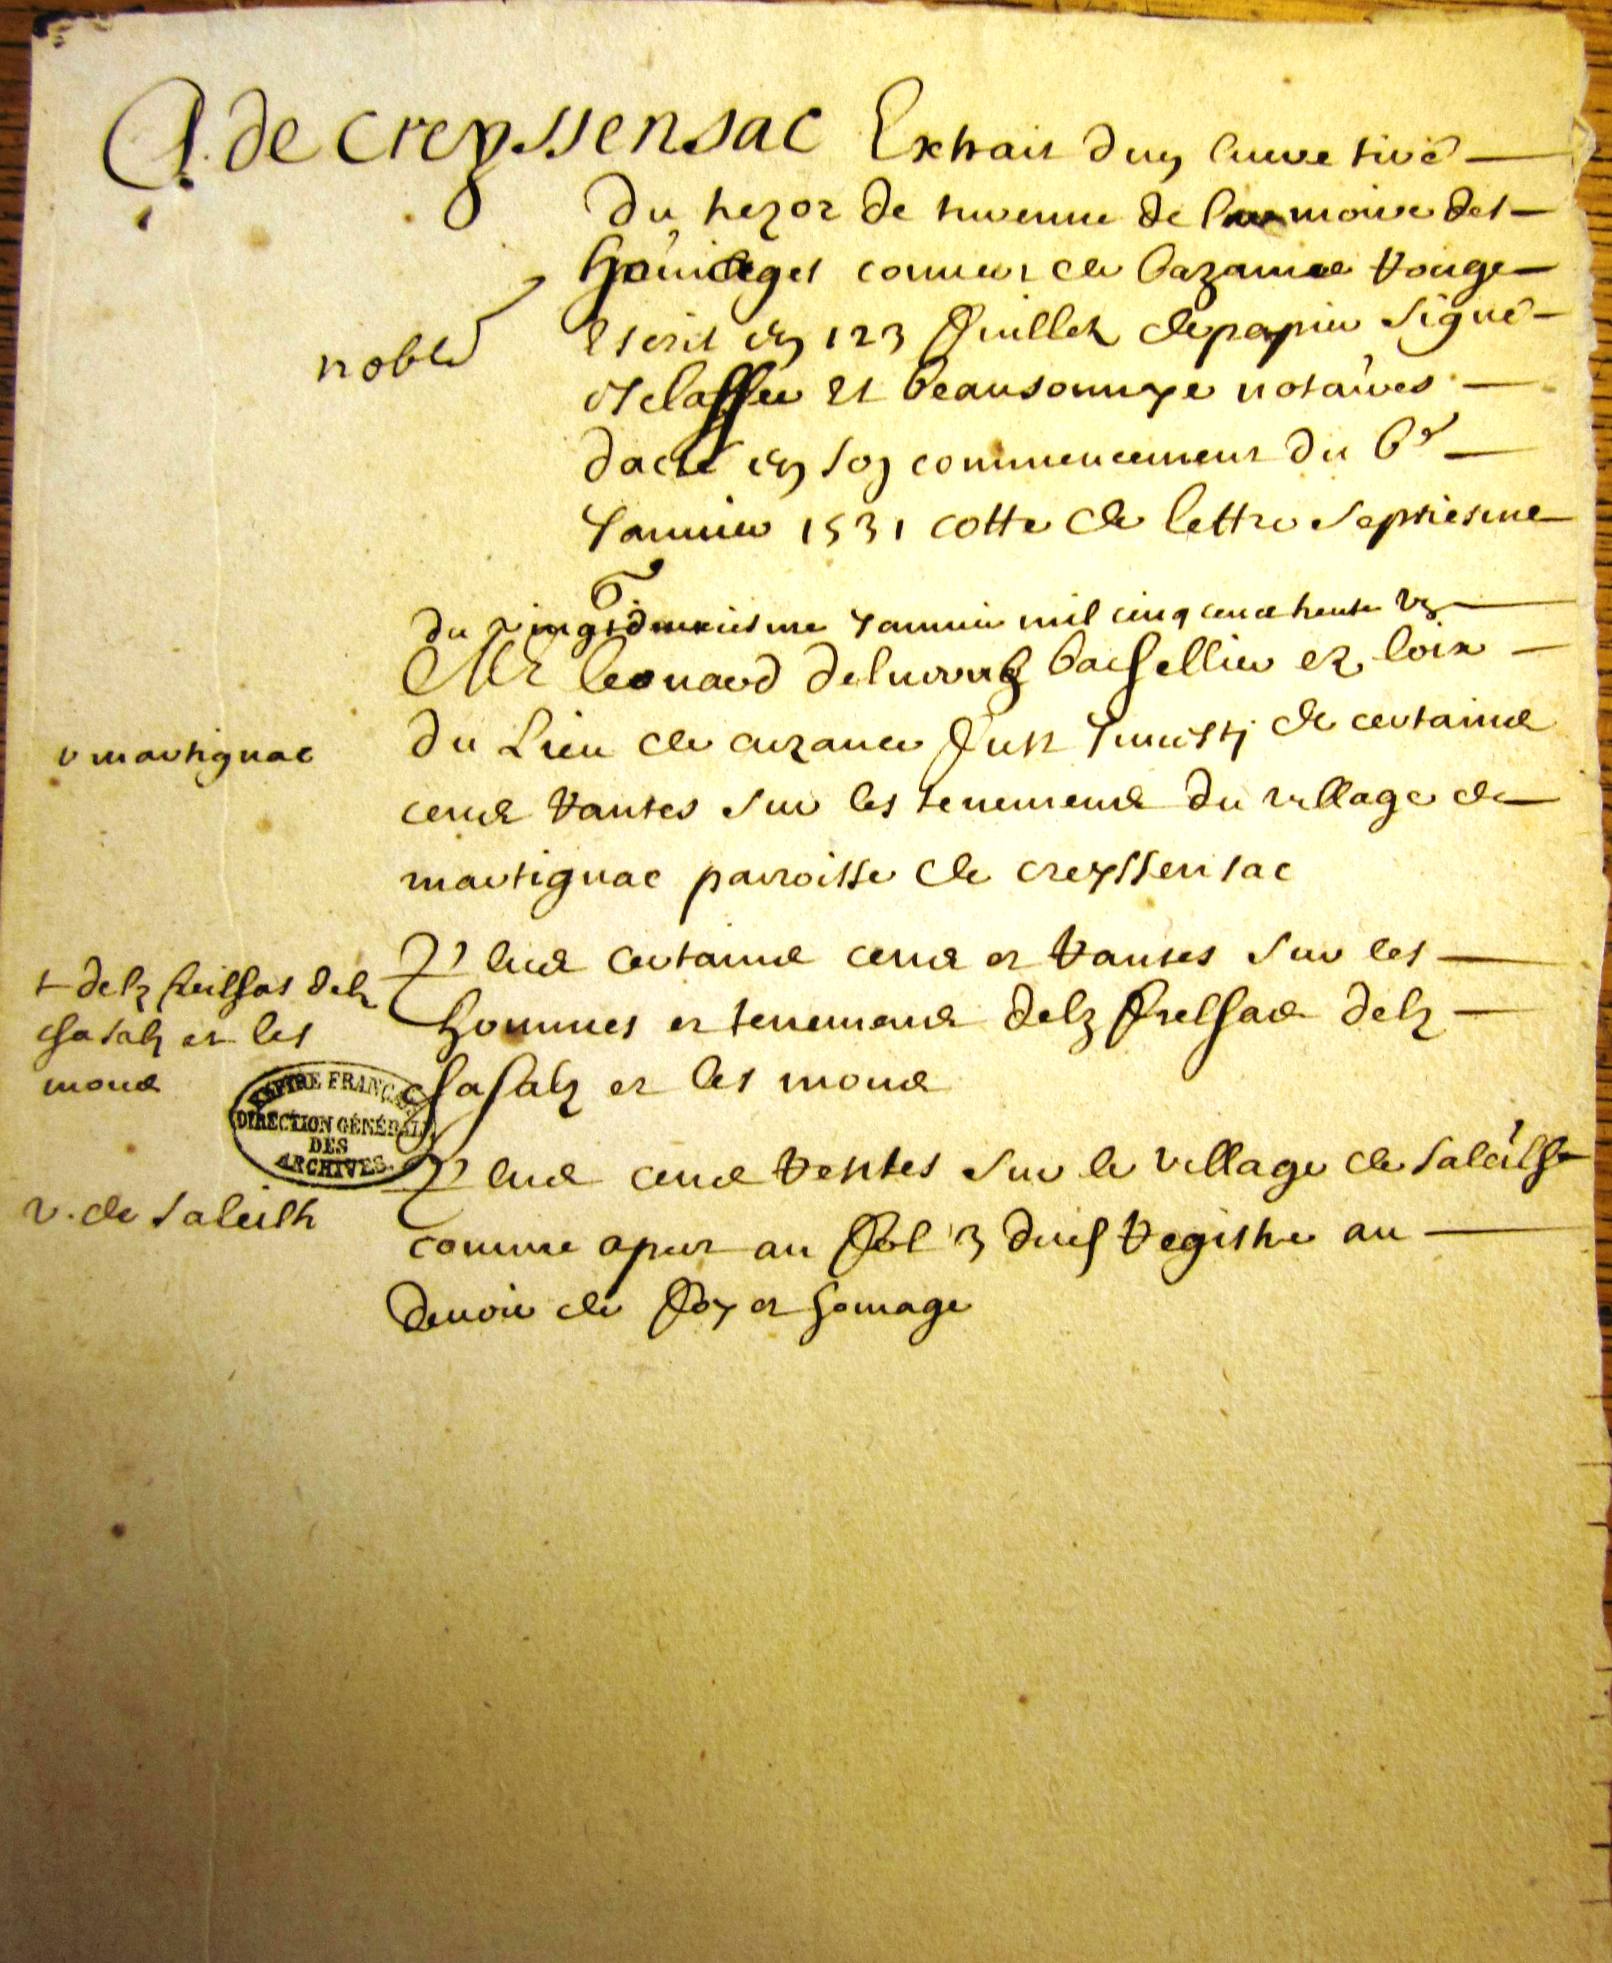 P. de creyssensac Extrait dun livre tiré
du trezor de turenne de larmoire des
homages couvert de bazanne rouge
noble
escrit en 123 fuillets de papier signé
declaffer et beausonnye notaires
dacté en son commencement du 6e
Janvier 1531 cotté de lettre septiesme
du vingtdeuxiesme Janvier mil cinq cens trente ung
Me leonard bachellier ez loix
v martignac
du Lieu de auzance fust Investi de certains
cens rantes sur les tenemens du village de
martignac parroisse de creyssensac
t delz freilhas delz
chasalz et les
mons
Plus certains cens et rantes sur les
hommes et tenemens delz frelhas delz
chasalz et les mons
EMPIRE FRANÇAIS
DIRECTION GÉNÉRALE
DES
ARCHIVES
v. de saleilh
Plus cens rentes sur le village de saleilh
comme apert au fol 3 dud registre au
devoir de foy et homage